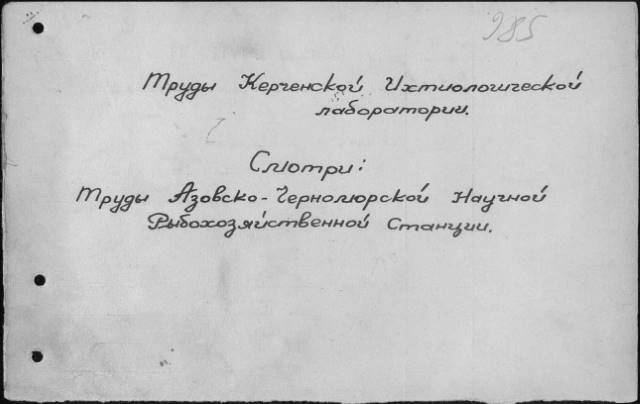 985
Труды Керченской Ихтиологической
лаборатории.
Смотри:
Труды Азовско-Черноморской Научной
Рыбохозяйственной Станции.